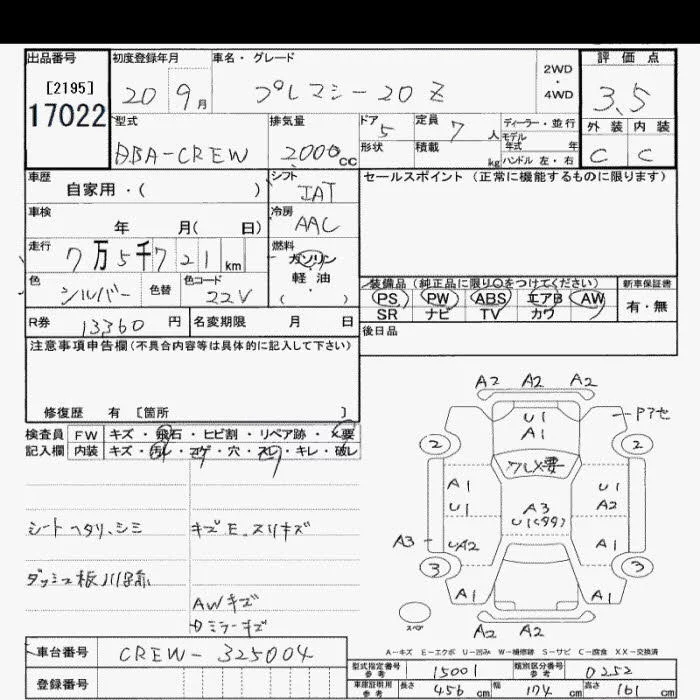 出品番号 初度登録年月 車名・グレード 2WD・4WD 評価点
[2195]
17022
20 9月 プレマシー20Z 3.5
型式 排気量 ドア 5 定員 7人 ディーラー・並行 外装 内装
モデル年式 年
DBA-CREW 2000cc 形状 積載 kg ハンドル 左・右 C C
車歴 シフト セールスポイント (正常に機能するものに限ります)
自家用・( ) IAT
車検 冷房
年 月( 日) AAC
走行 燃料
7万5千721km ガソリン
軽油
( ・ )
色 色替 色コード 装備品 (純正品に限り○をつけてください) 新車保証書
シルバー 22V PS PW ABS エアB AW 有・無
SR ナビ TV カワ
R券 13360円 名変期限 月 日 後日品
注意事項申告欄(不具合内容等は具体的に記入して下さい)
修復歴 有 [箇所 ]
検査員 FW キズ・飛石・ヒビ割・リペア跡・X要
記入欄 内装 キズ・汚レ・コゲ・穴・スレ・キレ・破レ
シートヘタリ、シミ
キズE、スリキズ
AWキズ
ミラーキズ
A2 A2 A2
U1
A1
2 2
A1 U1
A2
A3
A3 UA2 A1
3 3
A1 A1
スペア A2 A2
A-キズ E-エクボ U-凹み W-補修跡 S-サビ C-腐食 XX-交換済
車台番号 CREW-325004
登録番号
型式指定番号 参考 15001 類別区分番号 参考 0252
車庫証明用 参考 長さ 456cm 幅 174cm 高さ 161cm